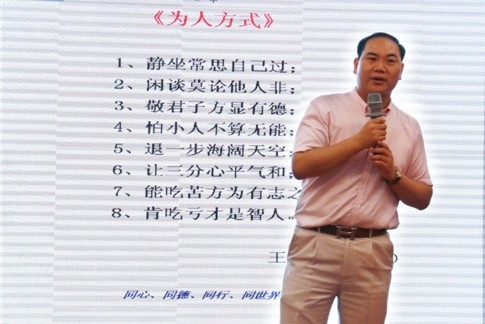 《为人方式》
1、静坐常思自己过；
2、闲谈莫论他人非；
3、敬君子方显有德；
4、怕小人不算无能；
5、退一步海阔天空；
6、让三分心平气和；
7、能吃苦方为有志之
8、肯吃亏才是智人。
王
同心、同德、同行、同世界